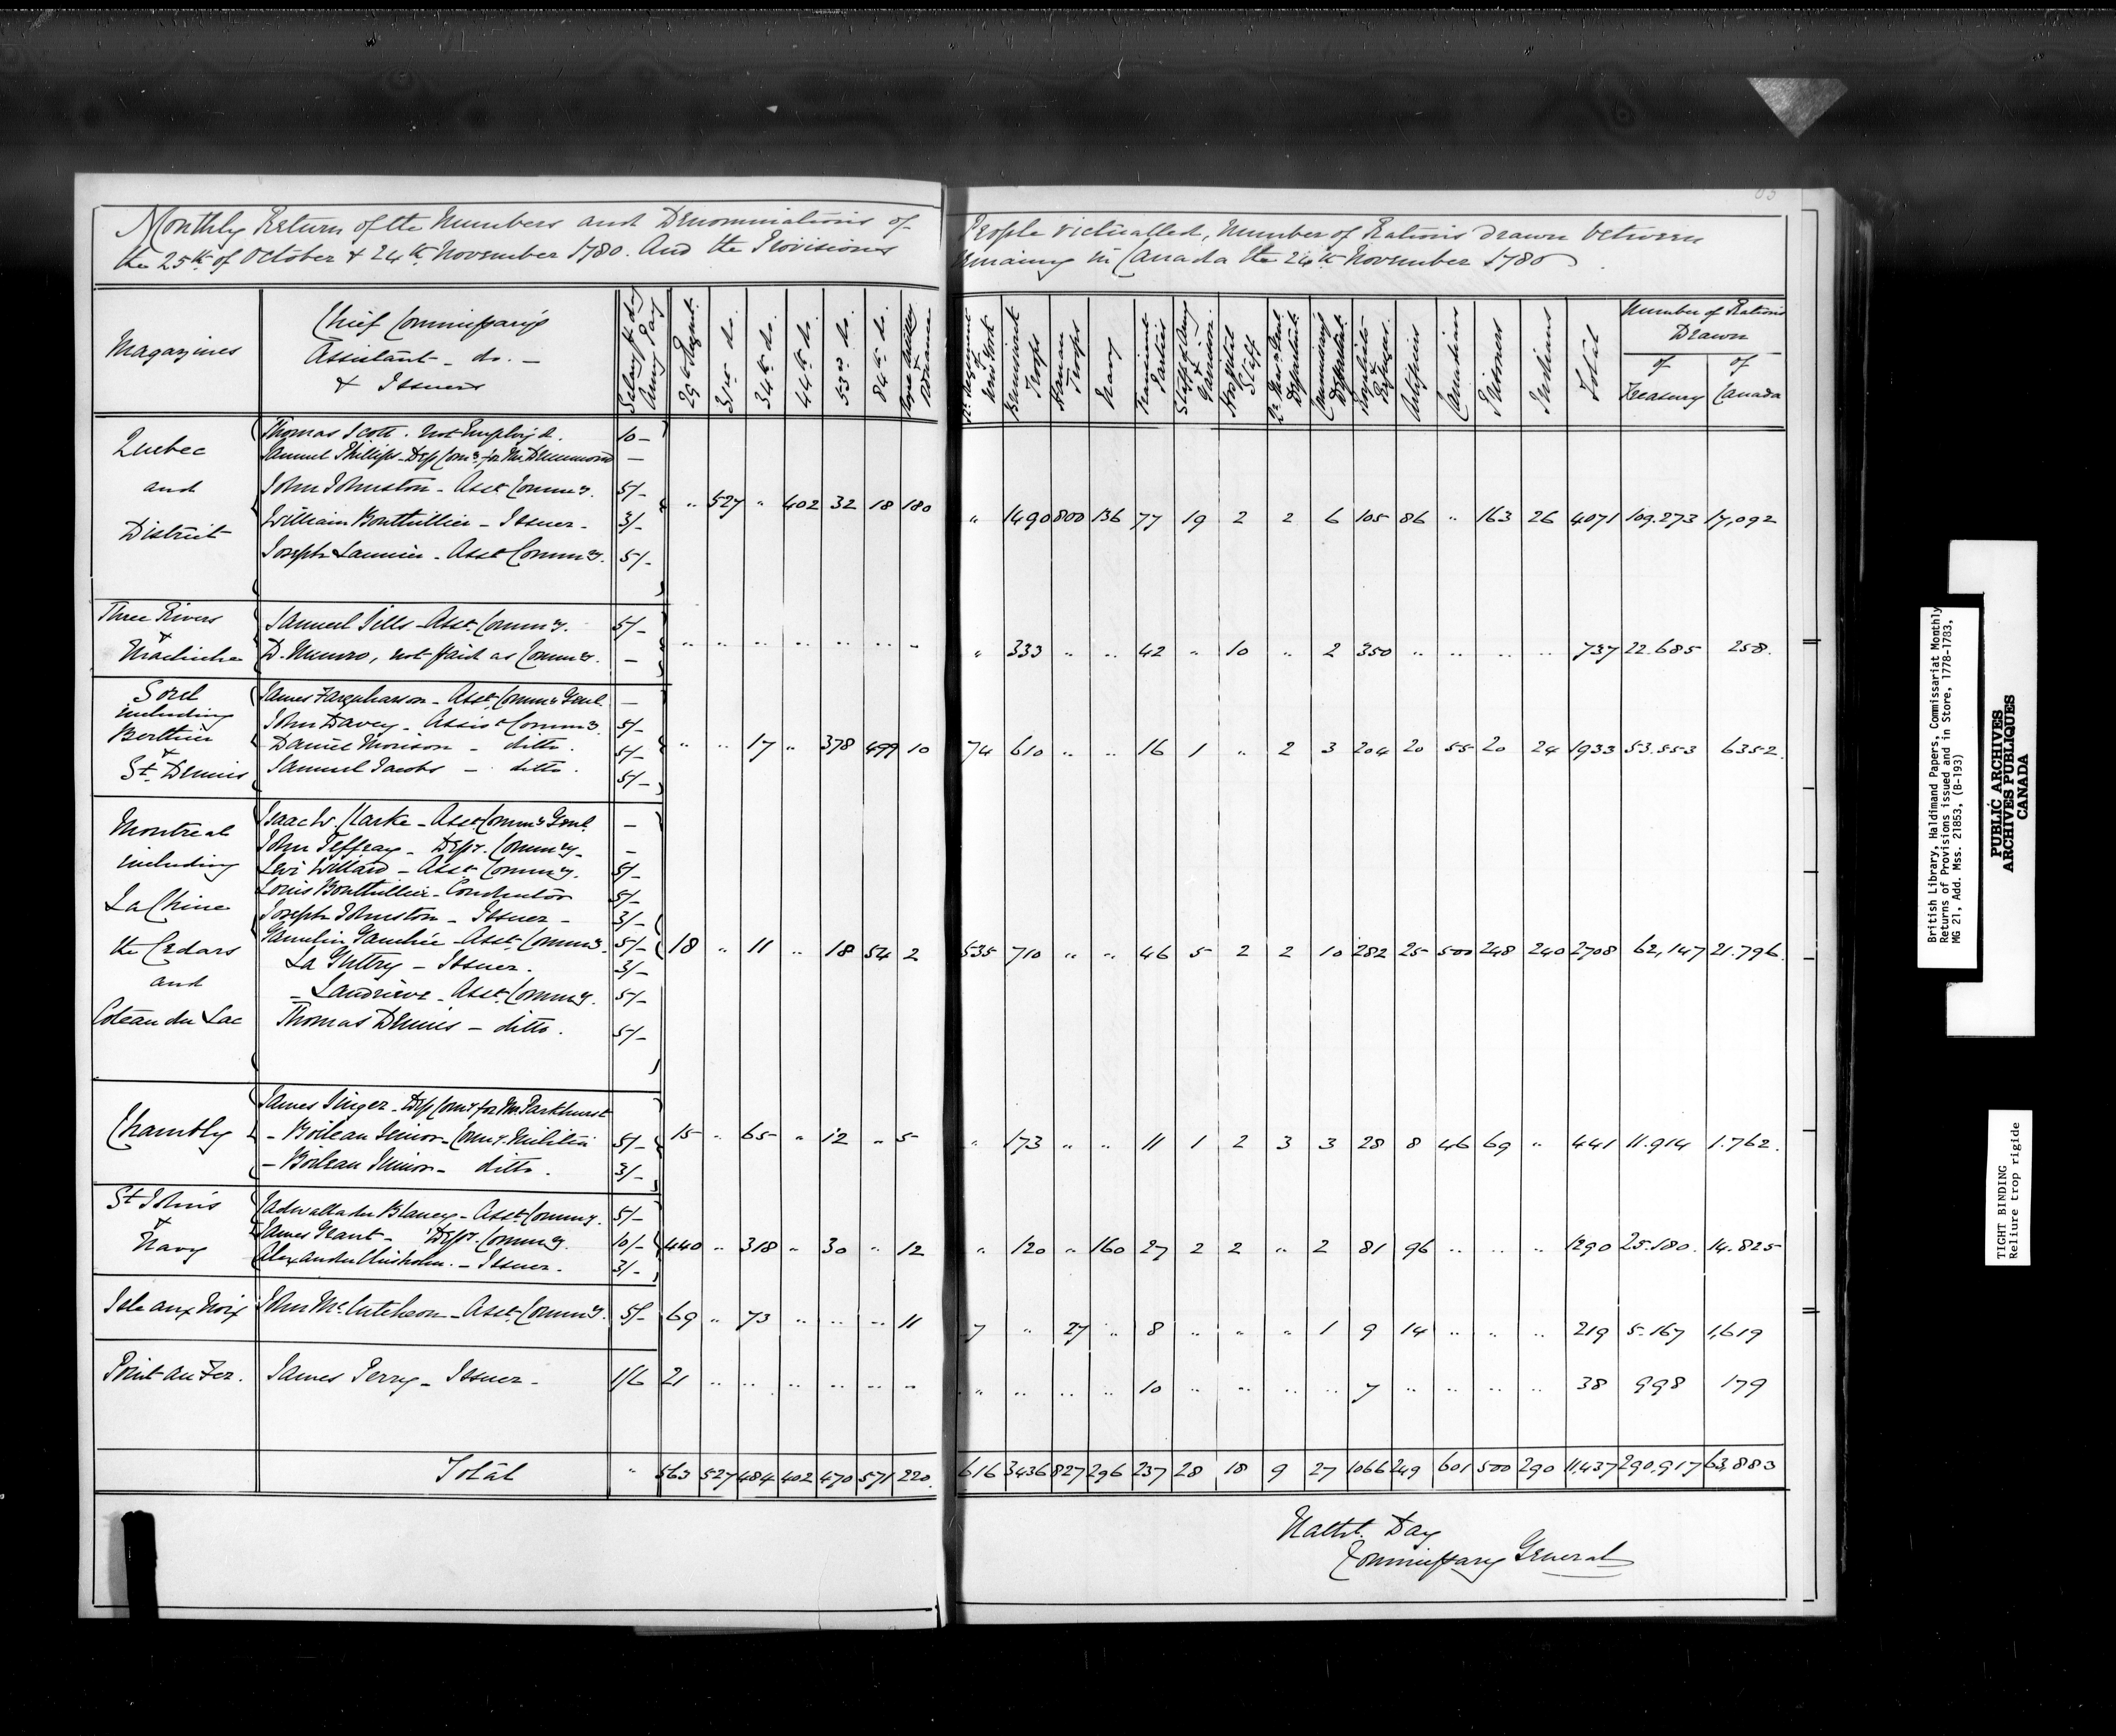 Monthly Return of the Numbers and Denominations of People victualled, Number of Rations drawn between
the 25th of October & 24th November 1780. And the Provisions remaing in Canada the 24th November 1780
Magazines | Chief Commissary's Assistant do. & Issuers | Salary pr. day Army Pay | 29th Regmt. | 31st do. | 34th do. | 44th do. | 53d do. | 84th do. | Royal Artillery & Ordnance | Rl. Regiment of New York | Brunswick Troops | Hanau Troops | Navy | Provincial Parties | Staff of Army & Garrison | Hospital Staff | Qr. Mas. Genl. Department | Commissary's Department | Royalists & Refugees | Artificers | Canadians | Prisoners | Indians | Total | Number of Rations Drawn of Treasury | of Canada
Quebec and District
Thomas Scott. not Employ'd. 10 –
Samuel Phillips – Dep Comy. for Mr. Drummond –
John Johnston – Asst. Commy. 5/-
William Bouthillier – Issuer – 3/-
Joseph Launier – Asst Commy. 5/-
" 527 " 402 32 18 180 " 1490 800 136 77 19 2 2 6 105 86 " 163 26 4071 109.273 17,092
Three Rivers & Machiche
Samuel Sills – Asst. Commy. 5/-
D. Munro, not paid as Commy. –
" " " " " " " " 333 " " 42 " 10 " 2 350 " " " " 737 22.685 258.
Sorel including Berthier & St. Dennis
James Farquharson – Asst. Commy Genl. –
John Davey – Assist Commy. 5/-
Daniel Morison – ditto. 5/-
Samuel Jacobs – ditto. 5/-
" " 17 " 378 499 10 74 610 " " 16 1 " 2 3 204 20 55 20 24 1933 53.553 6352.
Montreal including La Chine the Cedars and Coteau du Lac
Isaac W. Clarke – Asst. Commy Genl. –
John Jeffray – Depy. Commy –
Levi Willard – Asst Commy. 5/-
Louis Bouthillier – Conductor 5/-
Joseph Johnston – Issuer – 3/-
Gamelin Gauchée – Asst. Commy. 5/-
La Guttry – Issuer. 3/-
– Landrieve – Asst. Commy. 5/-
Thomas Dennis – ditto. 5/-
18 " 11 " 18 54 2 535 710 " " 46 5 2 2 10 282 25 500 248 240 2708 62,147 21.796
Chambly
James Singer – Dep Comy for Mr. Parkhurst
– Boileau Senior – Commy. Militia 5/-
– Boileau Junior – ditto. 3/-
15 " 65 " 12 " 5 " 173 " " 11 1 2 3 3 28 8 46 69 " 441 11.914 1.762.
St. John's & Navy
Cadwallader Blaney – Asst. Commy. 5/-
James Grant – Depy. Commy. 10/-
Alexander Chisholm. – Issuer. 3/-
440 " 318 " 30 " 12 " 120 " 160 27 2 2 " 2 81 96 " " " 1290 25.180. 14.825
Isle aux Noix John McCutcheon – Asst. Commy. 5/- 69 " 73 " " " 11 7 " 27 " 8 " " " 1 9 14 " " " 219 5.167 1,619
Point au Fer. James Perry – Issuer – 1/6 21 " " " " " " " " " " 10 " " " " 7 " " " " 38 998 179
Total " 563 527 484 402 470 571 220. 616 3436 827 296 237 28 18 9 27 1066 249 601 500 290 11,437 290,917 63,883
Nathl. Day
Commissary General
British Library, Haldimand Papers, Commissariat Monthly
Returns of Provisions issued and in Store, 1778-1783,
MG 21, Add. Mss. 21853, (B-193)
PUBLIC ARCHIVES
ARCHIVES PUBLIQUES
CANADA
TIGHT BINDING
Reliure trop rigide